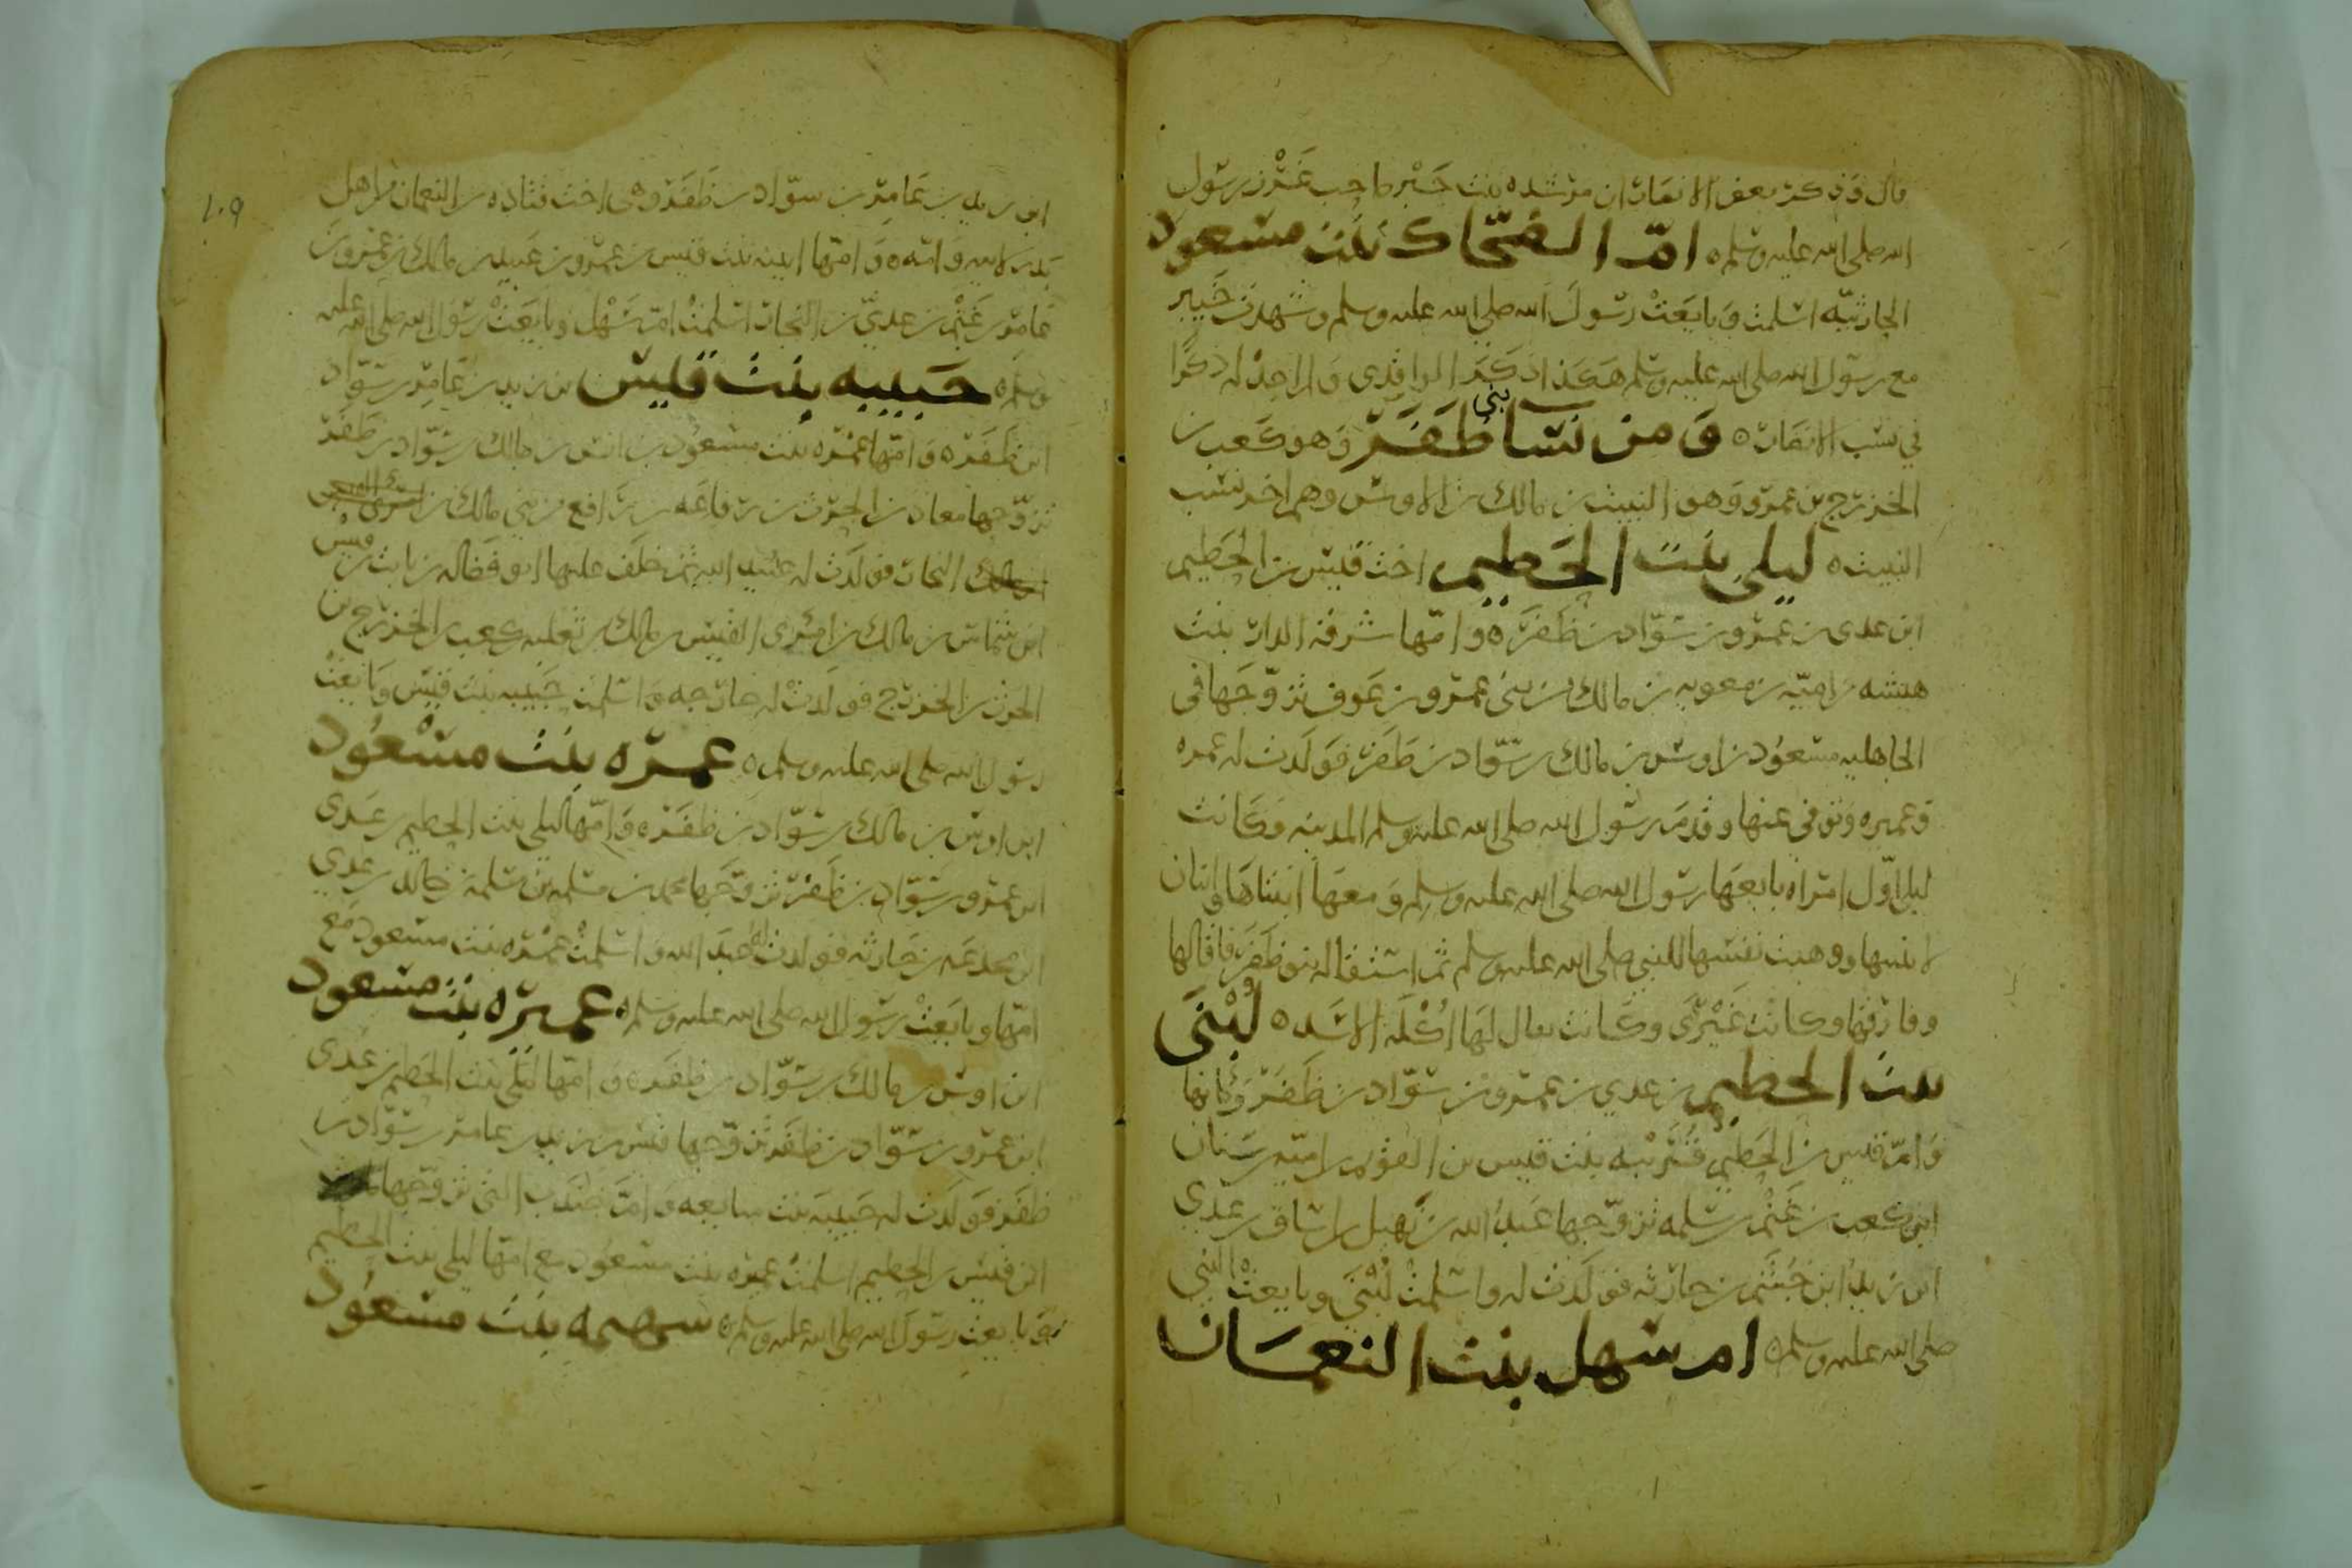 قال وذكر بعض الانصار ان مرشده بنت جبر صاحب عمر بن رسول
الله صلى الله عليه وسلم ٥ امّ الضحّاك بنت مسعود
الحارثيّه اسلمت وبايعت رسول الله صلى الله عليه وسلم وشهدت خيبر
مع رسول الله صلى الله عليه وسلم هكذا ذكر الواقدى ولم اجد له ذكرًا
في نسب الانصار ٥ ومن نسا بني ظفر وهو كعب بن
الخزرج بن عمرو وهو النبيت بن مالك بن الاوس وهم اخر نسب
النبيت ٥ ليلى بنت الخطيم اخت قيس بن الخطيم
ابن عدى بن عمرو بن سوّاد بن ظفر ٥ وامّها شرفة الدار بنت
هيشه بن اميّه بن معويه بن مالك من بنى عمرو بن عوف تزوّجها فى
الجاهليه مسعود بن اوس بن مالك بن سوّاد بن ظفر فولدت له عمره
وعميره وتوفى عنها وقدم رسول الله صلى الله عليه وسلم المدينه وكانت
ليلى اوّل امراه بايعها رسول الله صلى الله عليه وسلم ومعها ابنتاها وابنتان
لابنتها ووهبت نفسها للنبي صلى الله عليه وسلم ثم استقاله بنو ظفر فاقالها
وفارقها وكانت غيرى وكانت يقال لها اكلة الاسد ٥ لُبنَى
بنت الخطيم بن عدي بن عمرو بن سوّاد بن ظفر وامها
وامّ قيس بن الخطيم قُرَيْبه بنت قيس بن القريم بن اميّه بن سنان
ابن كعب بن غنم بن سلمه تزوّجها عبد الله بن نهيك بن اساف بن عدي
ابن زيد ابن جشم بن حارثه فولدت له واسلمت لُبنَى وبايعت النبي
صلى الله عليه وسلم ٥ ام سهل بنت النعمان
١٠٩
ابن زيد بن عامر بن سوّاد بن ظفر وهى اخت قتاده بن النعمان من اهل
بدر لابيه وامّه ٥ وامّها انيسه بنت قيس بن عمرو بن عبيد بن مالك بن عمرو بن
عامر بن غنم بن عديّ بن النجار اسلمت امّ سهل وبايعت رسول الله صلى الله عليه
وسلم ٥ حبيبه بنت قيس بن زيد بن عامر بن سوّاد
ابن ظفر ٥ وامّها عمره بنت مسعود بن اوس بن مالك بن سوّاد بن ظفر
تزوّجها معاذ بن الحرث بن رفاعه بن رافع من بني مالك بن
النجار فولدت له عبيد الله ثم خلف عليها ابو فضاله بن ثابت بن قيس
ابن شماس بن مالك بن امرئ القيس بن مالك بن ثعلبه بن كعب بن الخزرج بن
الحرث بن الخزرج فولدت له خارجه واسلمت حبيبه بنت قيس وبايعت
رسول الله صلى الله عليه وسلم ٥ عمره بنت مسعُود
ابن اوس بن مالك بن سوّاد بن ظفر ٥ وامّها ليلى بنت الخطيم بن عدى
ابن عمرو بن سوّاد بن ظفر تزوّجها محمد بن مسلمه بن سلمة بن خالد بن عدي
ابن مجدعه بن حارثه فولدت له عبد الله واسلمت عمره بنت مسعود مع
امّها وبايعت رسول الله صلى الله عليه وسلم ٥ عميره بنت مسعود
ابن اوس بن مالك بن سوّاد بن ظفر ٥ وامّها ليلى بنت الخطيم بن عدى
ابن عمرو بن سوّاد بن ظفر تزوّجها قيس بن زيد بن عامر بن سوّاد بن
ظفر فولدت له حبيبه بنت مبايعه وامّ جندب التي تزوّجها ثابت
ابن قيس بن الخطيم اسلمت عميره بنت مسعود مع امّها ليلى بنت الخطيم
وبايعت رسول الله صلى الله عليه وسلم ٥ سهيمه بنت مسعُود